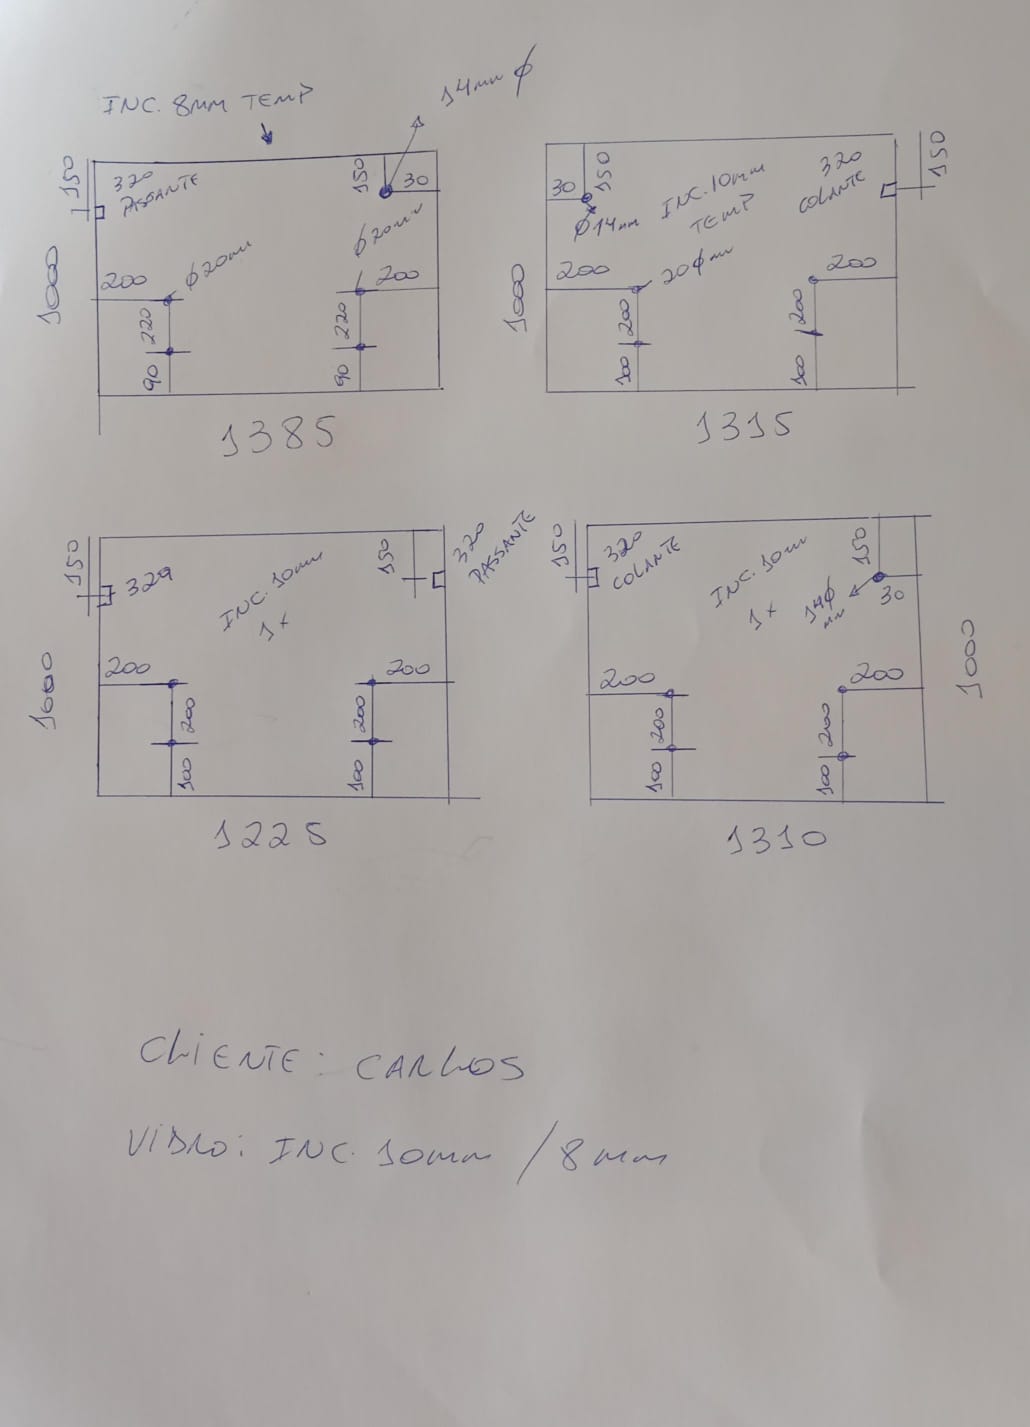 INC. 8mm TEMP
14mm ϕ
150
320
PASSANTE
150
30
1000
200
ϕ20mm
ϕ20mm
200
220
220
90
90
1385
30
150
ϕ14mm
INC. 10mm
TEMP
320
COLANTE
150
1000
200
20ϕmm
200
200
200
100
100
1315
150
329
INC. 10mm
1x
150
320
PASSANTE
1000
200
200
200
200
100
100
1225
150
320
COLANTE
INC. 10mm
1x
150
14ϕ
mm
30
1000
200
200
200
200
100
100
1310
CLIENTE: CARLOS
VIDRO: INC. 10mm / 8mm